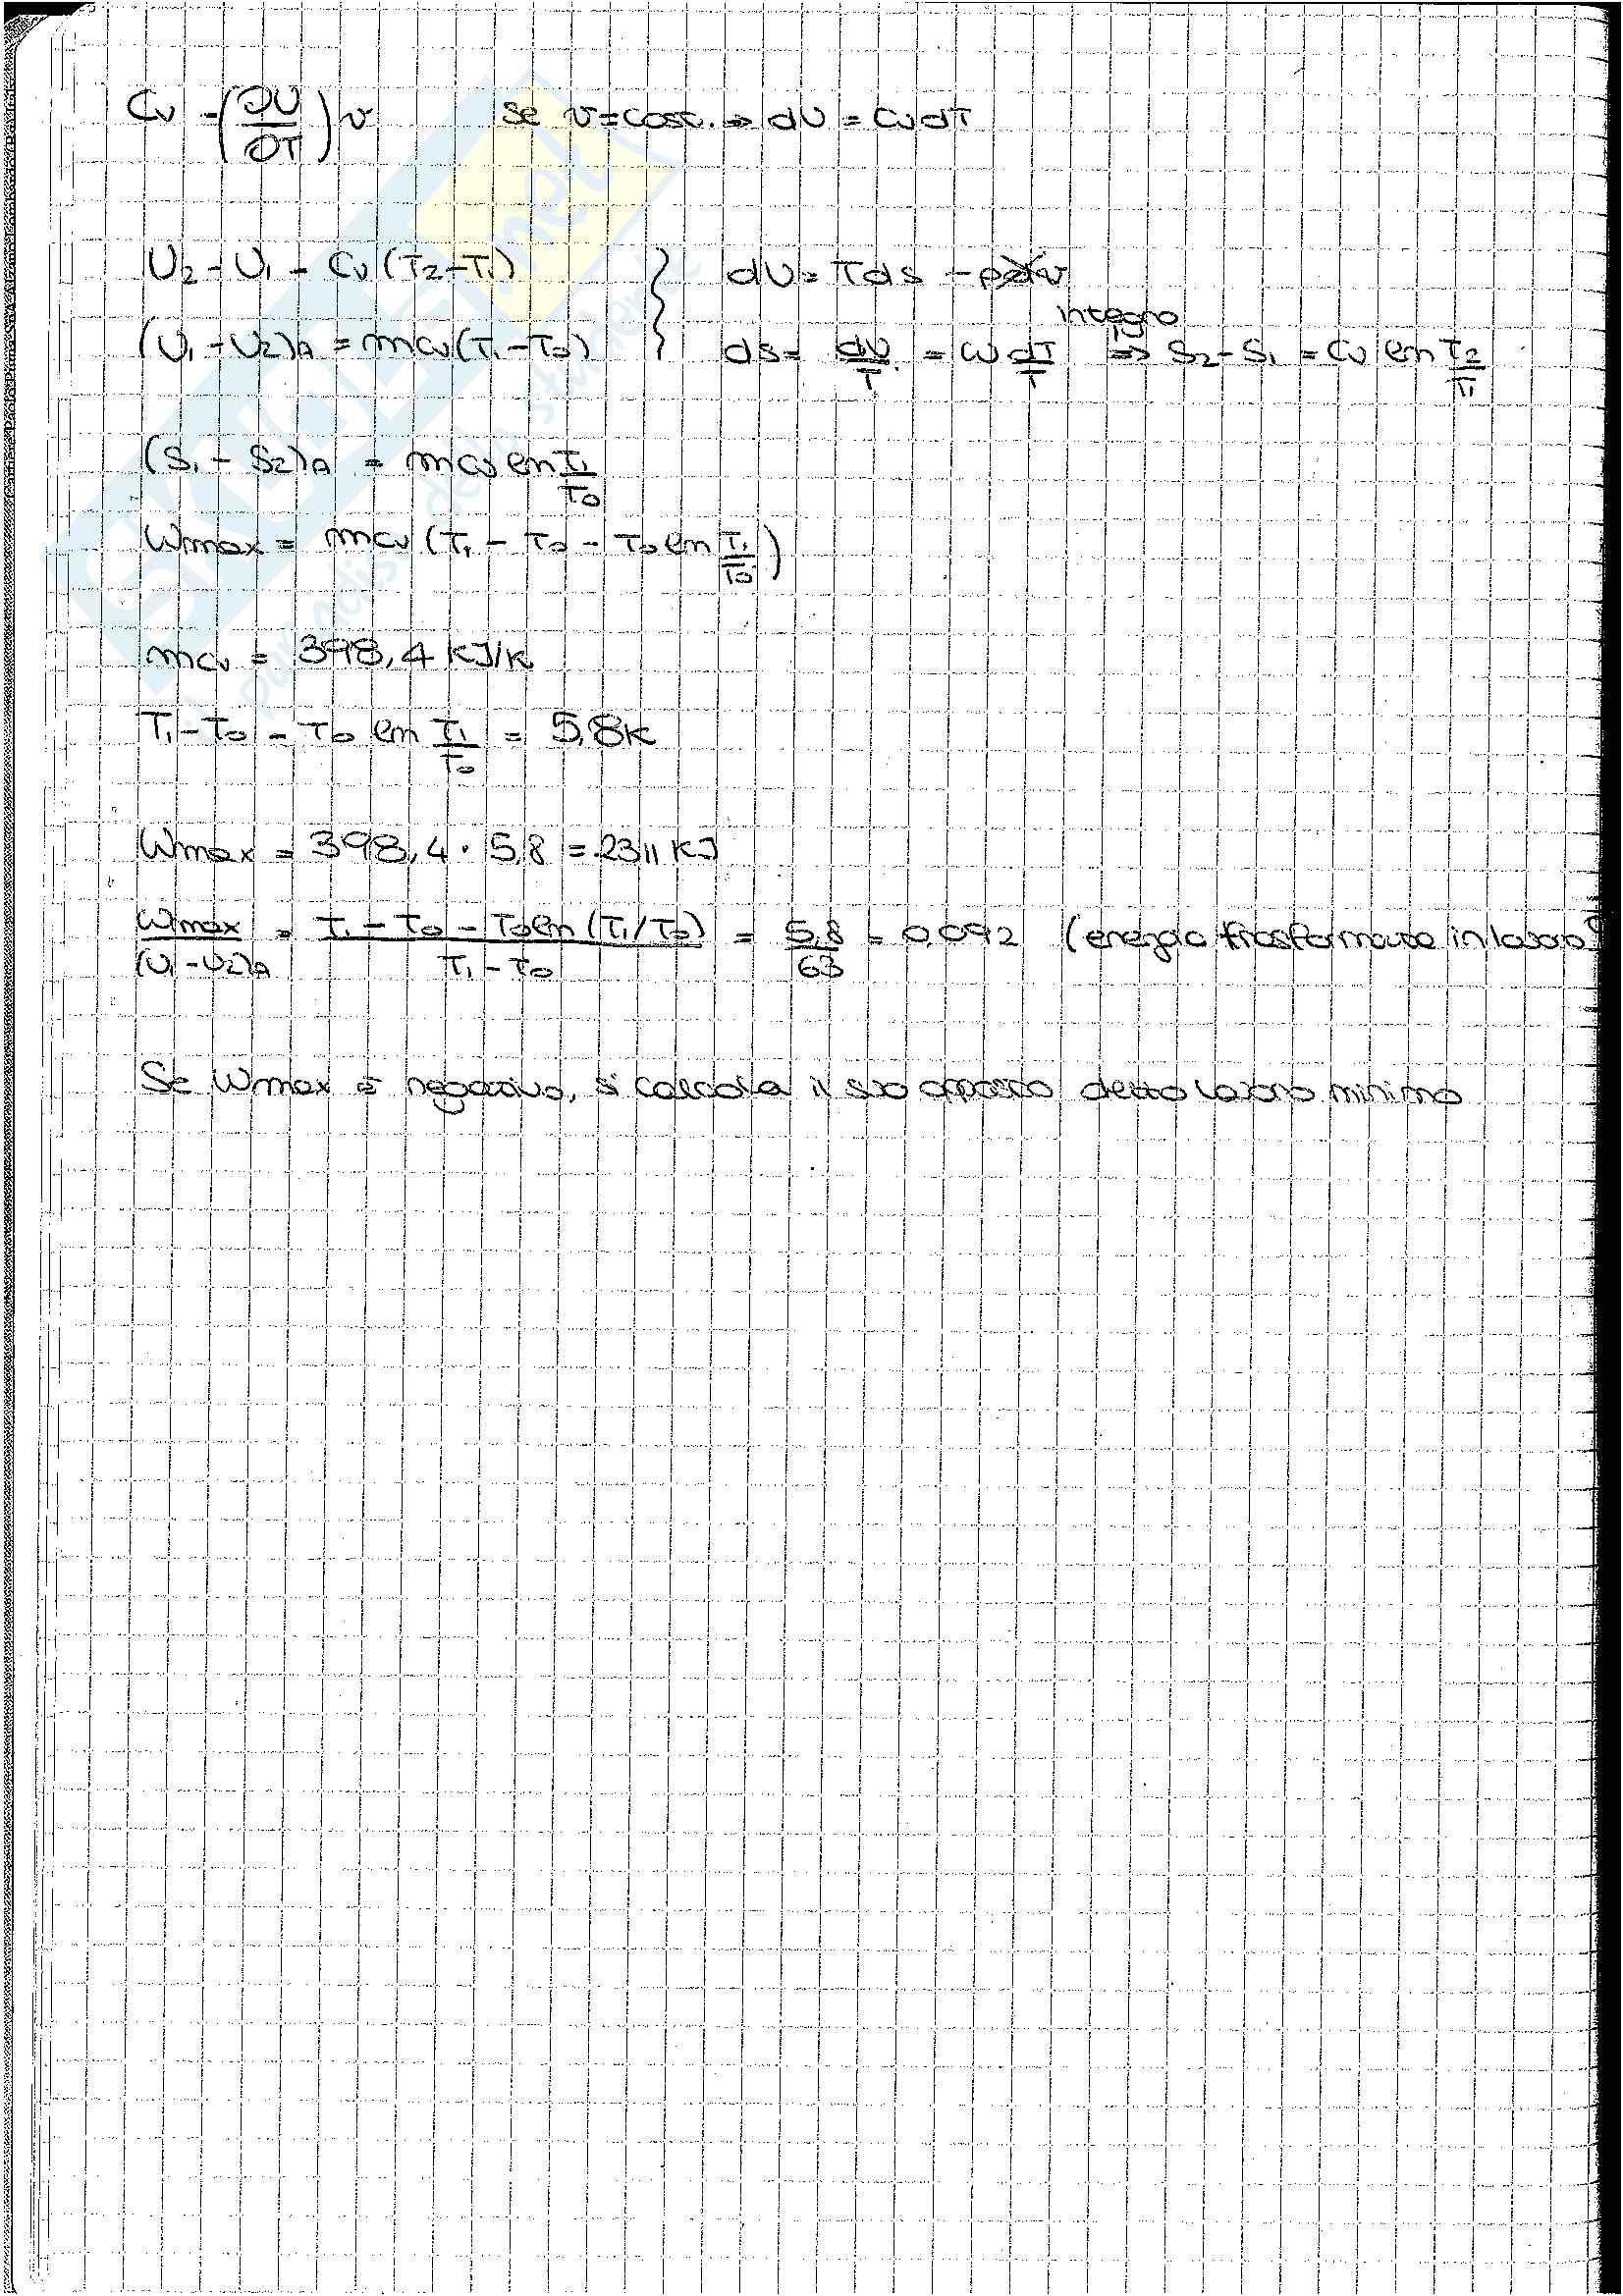 Cv = (∂U/∂T)v     se v = cost. ⇒ dU = Cv dT
U2 - U1 = Cv (T2 - T1)     dU = Tds - pdv
(U1 - U2)A = mcv (T1 - T0)     ds = dU/T = cv dT/T ⇒ S2 - S1 = Cv ln T2/T1
integro
(S1 - S2)A = mcv ln T1/T0
Wmax = mcv (T1 - T0 - T0 ln T1/T0)
mcv = 398,4 KJ/K
T1 - T0 - T0 ln T1/T0 = 5,8K
Wmax = 398,4 · 5,8 = 2311 KJ
Wmax/(U1 - U2)A = T1 - T0 - T0 ln (T1/T0)/T1 - T0 = 5,8/63 = 0,092 (energia trasformata in lavoro)
Se Wmax è negativo, si calcola il suo opposto, detto lavoro minimo